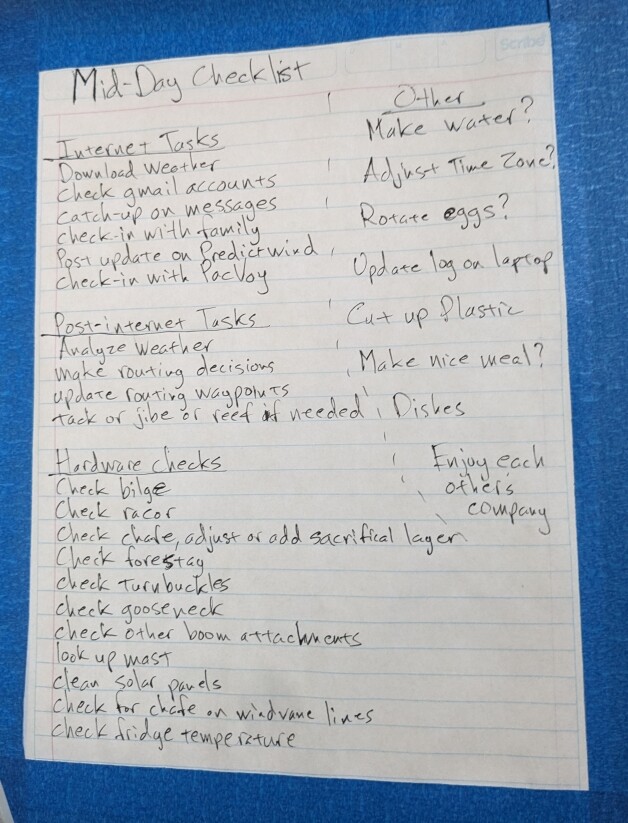 Scribe
Mid-Day Checklist
Internet Tasks
Download Weather
Check gmail accounts
Catch-up on messages
check-in with family
Post update on Predictwind
check-in with PacVoy
Post-internet Tasks
Analyze Weather
make routing decisions
update routing waypoints
tack or jibe or reef if needed
Hardware checks
Check bilge
Check racor
Check chafe, adjust or add sacrifical layer
Check forestay
check turnbuckles
check gooseneck
check other boom attachments
look up mast
clean solar panels
Check for chafe on windvane lines
check fridge temperature
Other
Make water?
Adjust Time Zone?
Rotate eggs?
Update log on laptop
Cut up Plastic
Make nice meal?
Dishes
Enjoy each
others
company